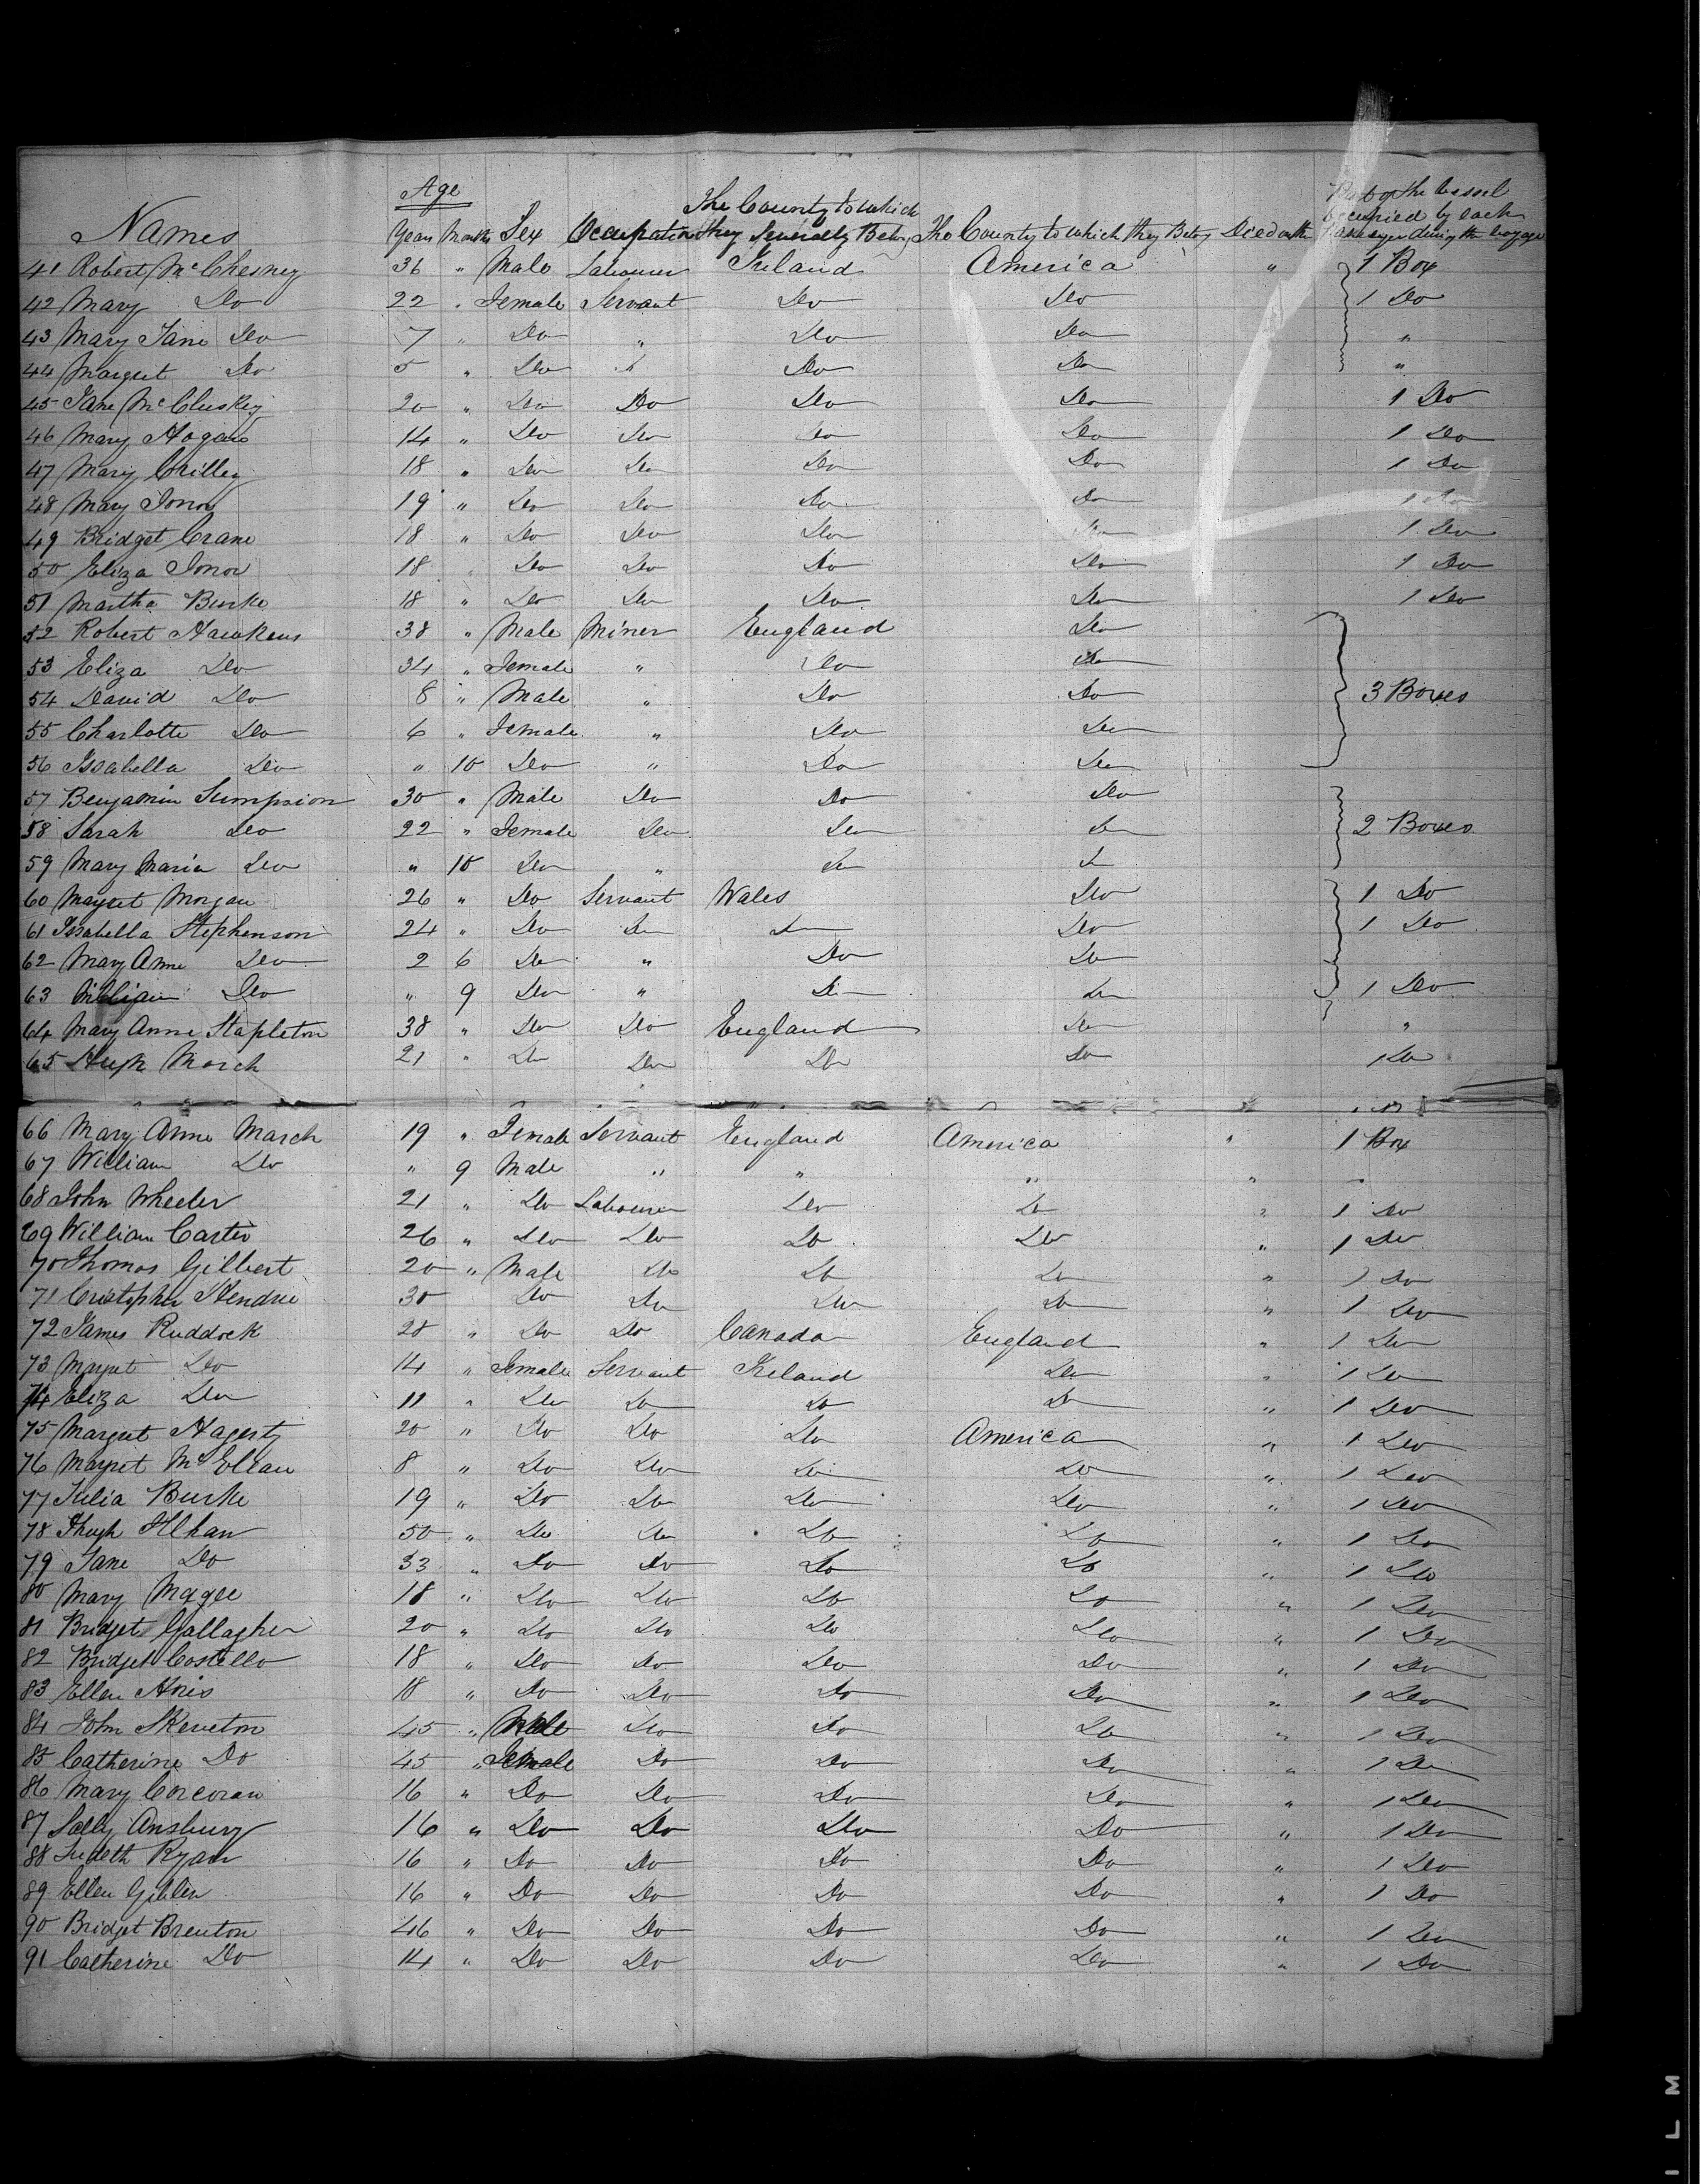 Age
The County to which
Part of the Vessel
occupied by each
Names Years Months Sex Occupation they Severally Belong The County to which they Belong Died on the passenger during the voyage
41 Robert McChesney 36 " Male Labourer Ireland America " 1 Box
42 Mary Do 22 " Female Servant Do Do 1 Do
43 Mary Jane Do 7 " Do " Do Do "
44 Margret Do 5 " Do " Do Do "
45 Jane McCluskey 20 " Do Do Do Do 1 Do
46 Mary Hogan 14 " Do Do Do Do 1 Do
47 Mary 18 " Do Do Do Do 1 Do
48 Mary 19 " Do Do Do Do 1 Do
49 Bridget Crane 18 " Do Do Do Do 1 Do
50 Eliza 18 " Do Do Do Do 1 Do
51 Martha Burke 18 " Do Do Do Do 1 Do
52 Robert Hawkens 38 " Male Miner England Do
53 Eliza Do 34 " Female " Do Do
54 David Do 8 " Male " Do Do 3 Boxes
55 Charlotte Do 6 " Female " Do Do
56 Issabella Do " 10 Do " Do Do
57 Benjamin Sumpsion 30 " Male Do Do Do
58 Sarah Do 22 " Female Do Do Do 2 Boxes
59 Mary Maria Do " 10 Do " Do Do
60 Margret Morgan 26 " Do Servant Wales Do 1 Do
61 Issabella Stephenson 24 " Do Do Do Do 1 Do
62 Mary Anne Do 2 6 Do " Do Do
63 William Do " 9 Do " Do Do 1 Do
64 Mary Anne Stapleton 38 " Do Do England Do "
65 Hugh March 21 " Do Do Do Do 1 Do
66 Mary Anne March 19 " Female Servant England America " 1 Box
67 William Do " 9 Male " " " " "
68 John Wheeler 21 " Do Labourer Do Do " 1 Do
69 William Carter 26 " Do Do Do Do " 1 Do
70 Thomas Gilbert 20 " Male Do Do Do " 1 Do
71 Cristopher 30 Do Do Do Do " 1 Do
72 James Ruddock 28 " Do Do Canada England " 1 Do
73 Margret Do 14 " Female Servant Ireland Do " 1 Do
74 Eliza Do 11 " Do Do Do Do " 1 Do
75 Margret Hagerty 20 " Do Do Do America " 1 Do
76 Margret 8 " Do Do Do Do " 1 Do
77 Julia Burke 19 " Do Do Do Do " 1 Do
78 Hugh 50 " Do Do Do Do " 1 Do
79 Jane Do 33 " Do Do Do Do " 1 Do
80 Mary Magee 18 " Do Do Do Do " 1 Do
81 Bridget Gallagher 20 " Do Do Do Do " 1 Do
82 Bridget Costello 18 " Do Do Do Do " 1 Do
83 Ellen 18 " Do Do Do Do " 1 Do
84 John Skeveton 45 " Male Do Do Do " 1 Do
85 Catherine Do 45 " Female Do Do Do " 1 Do
86 Mary Corcoran 16 " Do Do Do Do " 1 Do
87 Sally Ansbury 16 " Do Do Do Do " 1 Do
88 Judeth Ryan 16 " Do Do Do Do " 1 Do
89 Ellen Giblen 16 " Do Do Do Do " 1 Do
90 Bridget Brenton 46 " Do Do Do Do " 1 Do
91 Catherine Do 14 " Do Do Do Do " 1 Do